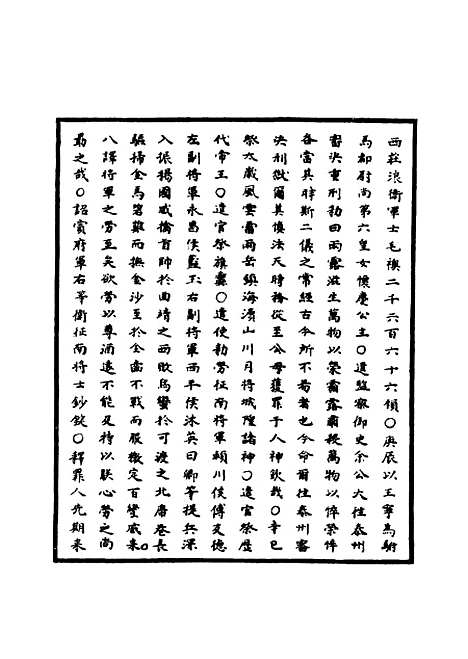 西莊浪衛軍士毛襖二千六百六十六領〇庚辰以王寧爲駙
馬都尉尚第六皇女懷慶公主〇遣監察御史余公大往泰州
審決重刑勑曰雨露滋生萬物以榮霜露肅殺萬物以悴榮悴
各當其時斯二儀之常經古今所不易者也今命爾往泰州審
決刑獄爾其慎法天時務從至公毋獲罪于人神欽哉〇辛巳
祭太歲風雲雷雨岳鎮海瀆山川月將城隍諸神〇遣官祭歷
代帝王〇遣官祭旗纛〇遣使勑勞征南將軍潁川侯傅友德
左副將軍永昌侯藍玉右副將軍西平侯沐英曰卿等提兵深
入振揚國威擒首帥於曲靖之西敗烏蠻於可渡之北席卷長
驅掃金馬碧雞而撫金沙至於金齒不戰而服檄定百蠻威來
八譯將軍之勞至矣欲勞以尊酒遠不能及特以朕心勞之尚
勗之哉〇詔賞府軍右等衛征南將士鈔錠〇釋罪人先期來